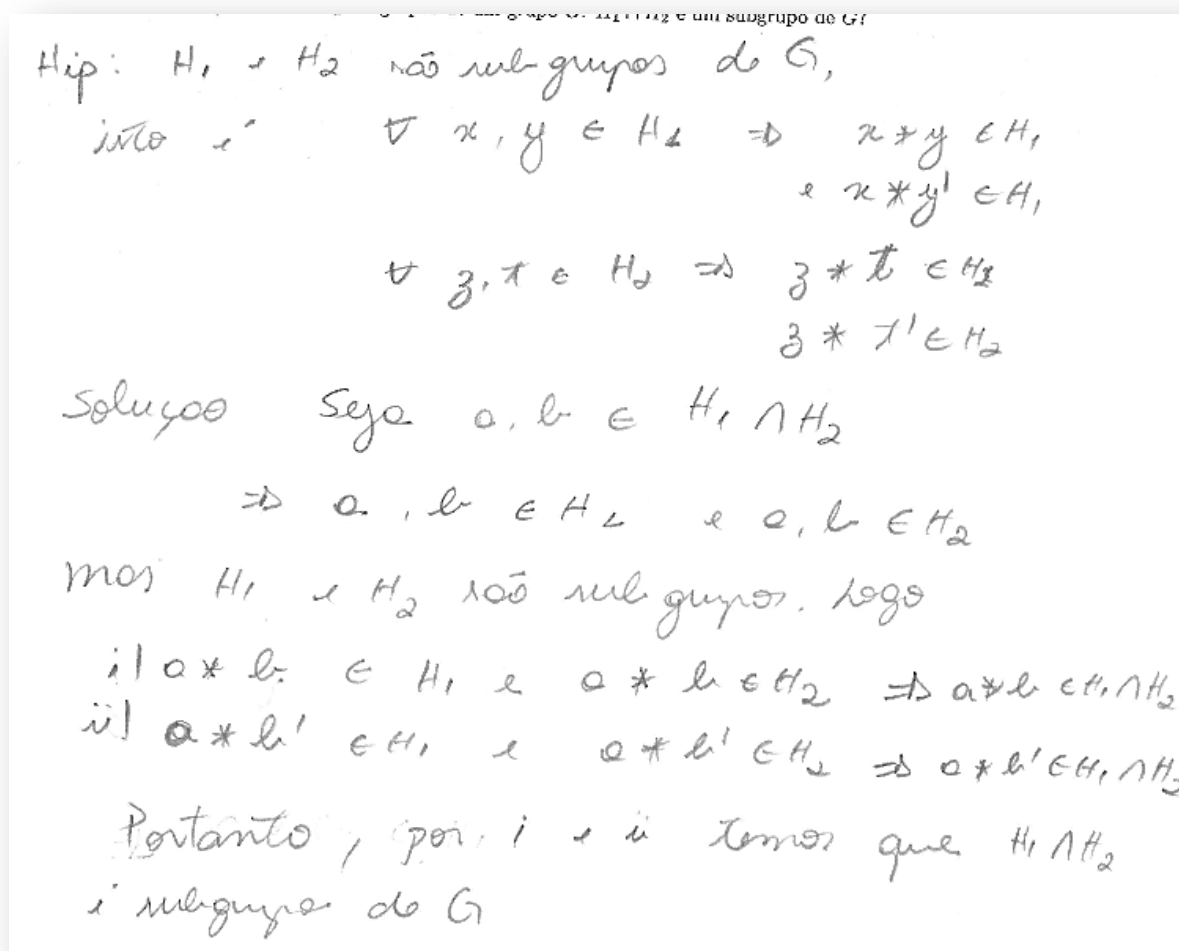 um grupo G. H₁ ∩ H₂ é um subgrupo de G?
Hip: H₁ e H₂ são sub-grupos de G,
isto é ∀ x, y ∈ H₁ ⇒ x * y ∈ H₁
e x * y' ∈ H₁
∀ z, t ∈ H₂ ⇒ z * t ∈ H₂
z * t' ∈ H₂
Solução Seja a, b ∈ H₁ ∩ H₂
⇒ a, b ∈ H₁ e a, b ∈ H₂
mas H₁ e H₂ são subgrupos. Logo
i) a * b ∈ H₁ e a * b ∈ H₂ ⇒ a * b ∈ H₁ ∩ H₂
ii) a * b' ∈ H₁ e a * b' ∈ H₂ ⇒ a * b' ∈ H₁ ∩ H₂
Portanto, por i e ii temos que H₁ ∩ H₂
é subgrupo de G